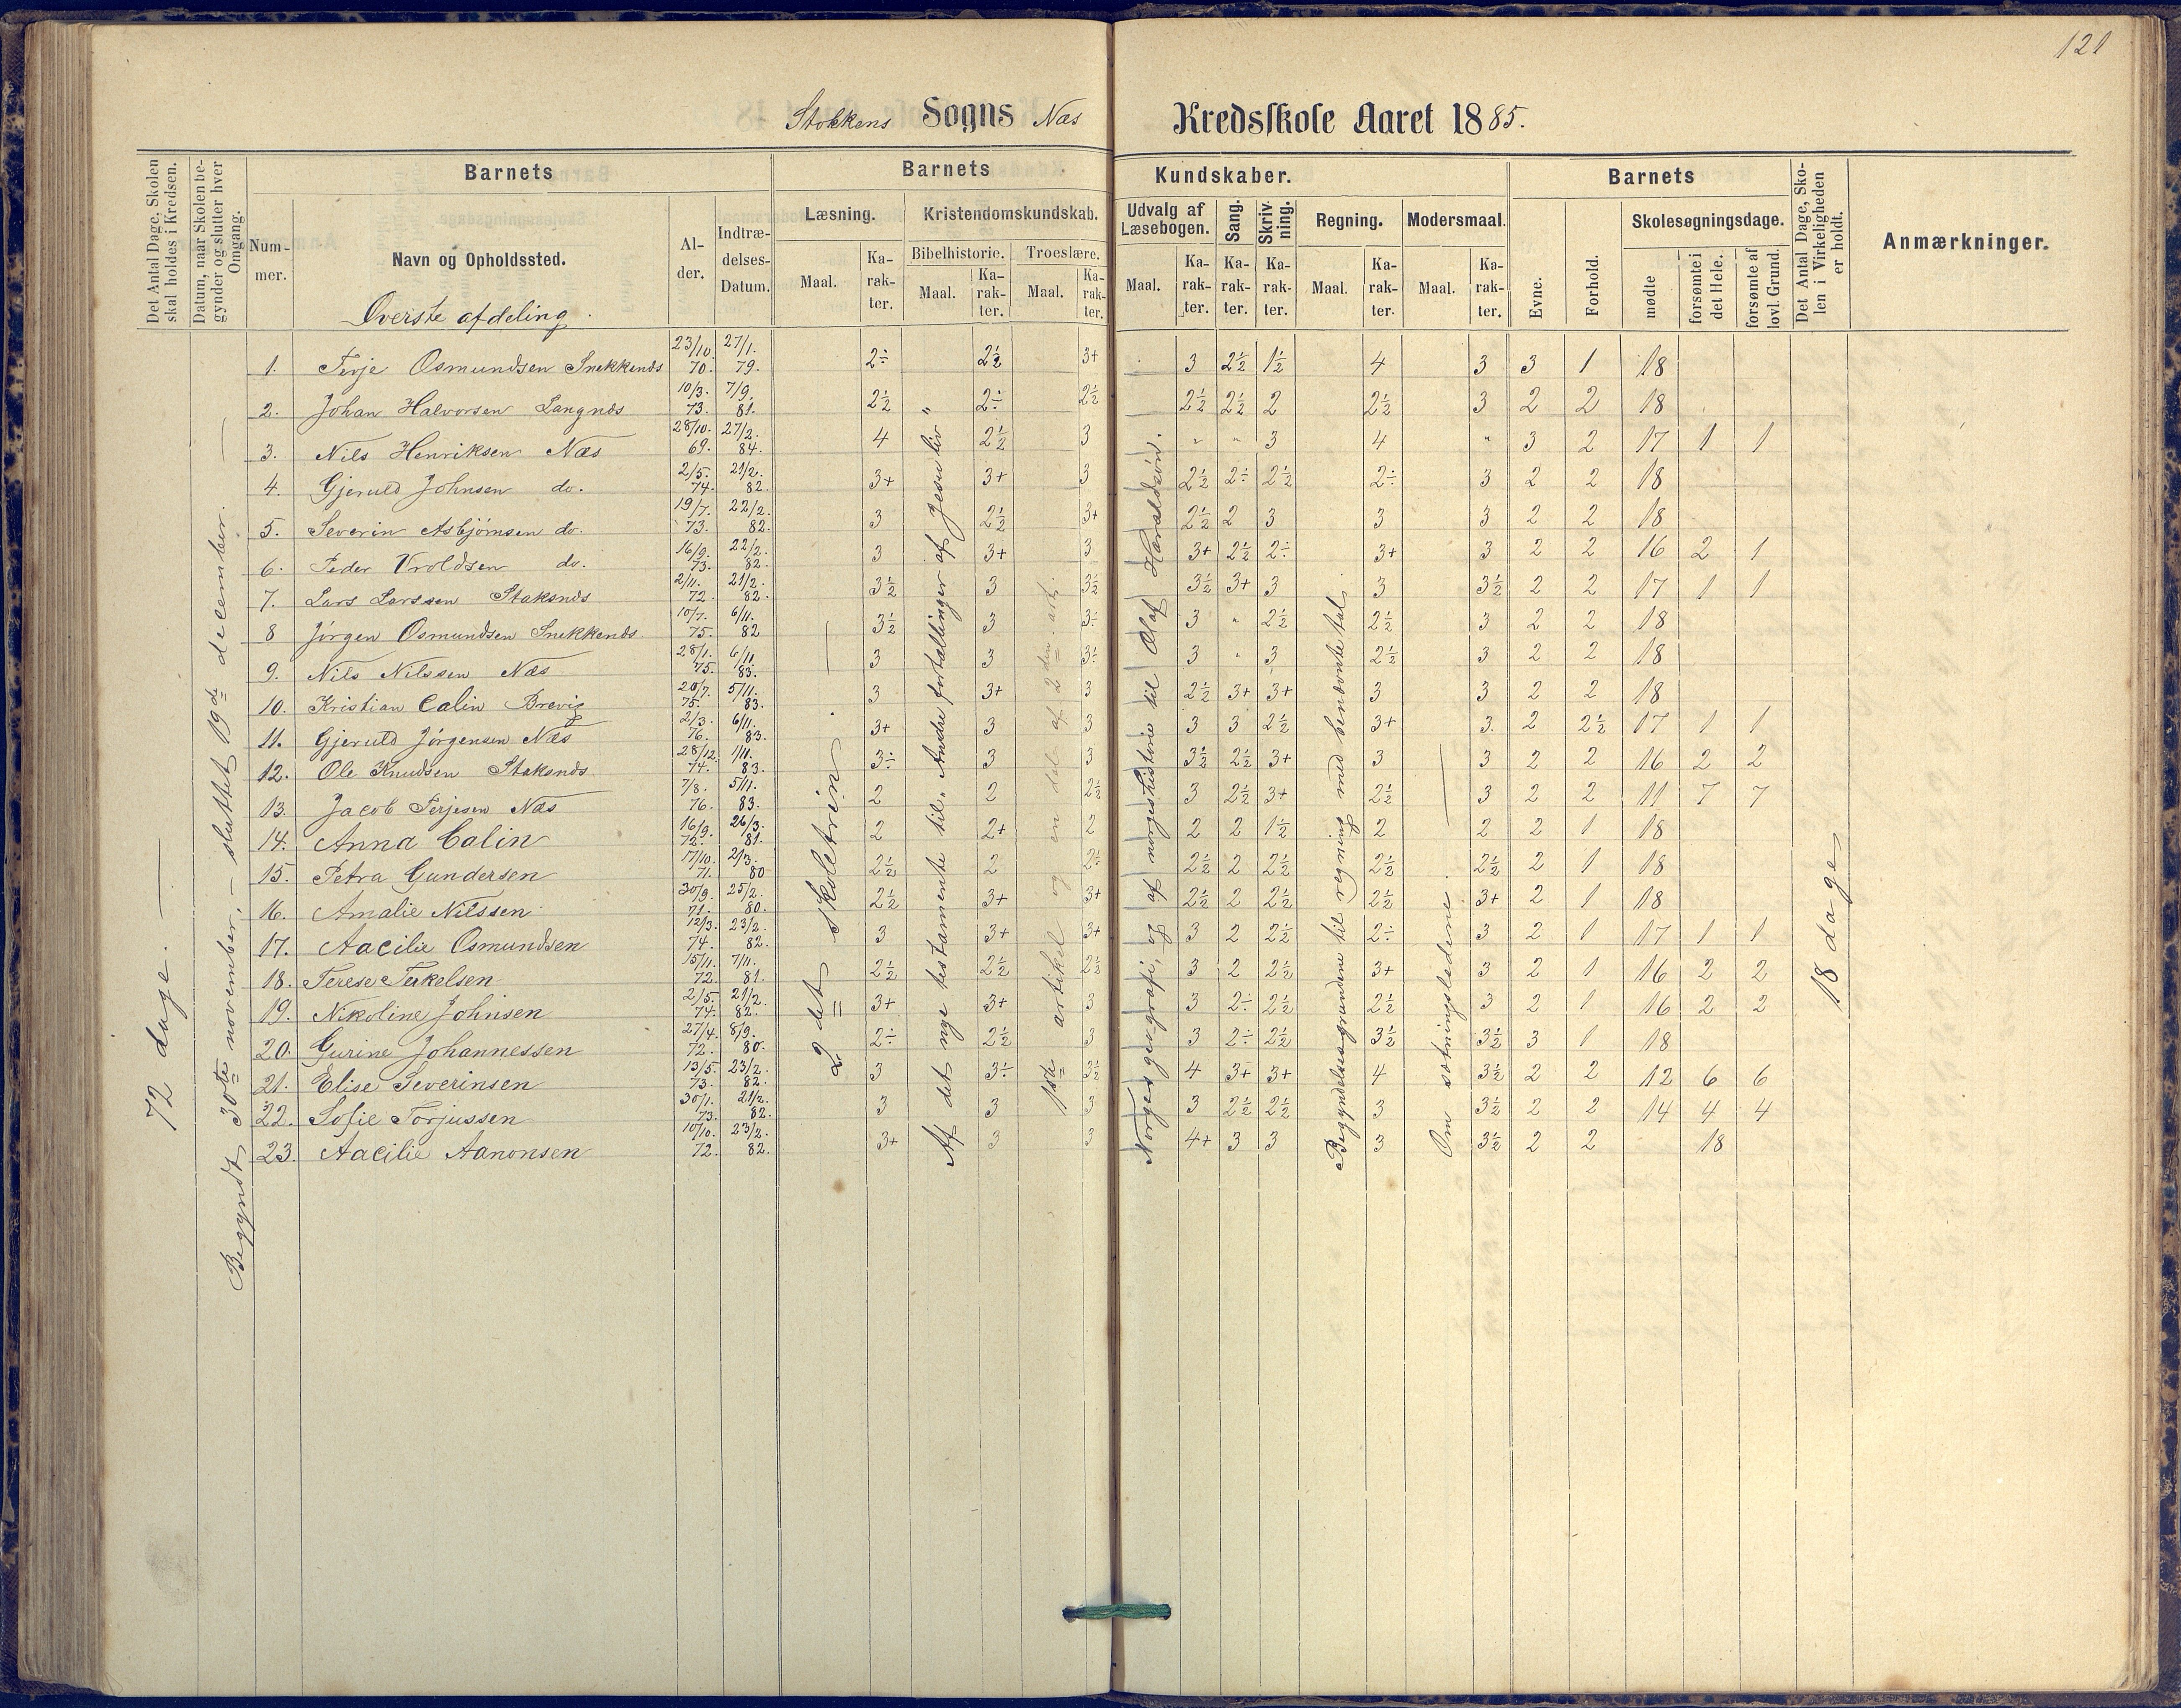 121
Stokkens Sogns Næs Kredsskole Aaret 1885.
Det Antal Dage, Skolen skal holdes i Kredsen.
Datum, naar Skolen begynder og slutter hver Omgang.
Barnets
Nummer.
Navn og Opholdssted.
Alder.
Indtrædelses-Datum.
Barnets Kundskaber.
Læsning.
Maal.
Karakter.
Kristendomskundskab.
Bibelhistorie.
Maal.
Karakter.
Troeslære.
Maal.
Karakter.
Udvalg af Læsebogen.
Maal.
Karakter.
Sang.
Karakter.
Skrivning.
Karakter.
Regning.
Maal.
Karakter.
Modersmaal.
Maal.
Karakter.
Barnets
Evne.
Forhold.
Skolesøgningsdage.
mødte
forsømte i det Hele.
forsømte af lovl. Grund.
Det Antal Dage, Skolen i Virkeligheden er holdt.
Anmærkninger.
Øverste afdeling.
72 dage.
Begyndt 30te november, – sluttet 19de december.
1. Terje Osmundsen Snekkenes 23/10. 70. 27/1. 79. 2÷ 2½ 3+ 3 2½ 1½ 4 3 3 1 18
2. Johan Halvorsen Langnes 10/3. 73. 7/9. 81. 2½ 2÷ 2½ 2½ 2½ 2 2½ 3 2 2 18
3. Nils Henriksen Næs 28/10. 69. 27/2. 84. 4 2½ 3 " " 3 4 " 3 2 17 1 1
4. Gjeruld Johnsen do. 2/5. 74. 21/2. 82. 3+ 3+ 3 2½ 2÷ 2½ 2÷ 3 2 2 18
5. Severin Asbjørnsen do. 19/7. 73. 22/2. 82. 3 2½ 3+ 2½ 2 3 3 3 2 2 18
6. Peder Vroldsen do. 16/9. 73. 22/2. 82. 3 3+ 3 3+ 2½ 2÷ 3+ 3 2 2 16 2 1
7. Lars Larssen Staksnes 2/11. 72. 21/2. 82. 3½ 3 3½ 3½ 3+ 3 3 3½ 2 2 17 1 1
8 Jørgen Osmundsen Snekkenes 10/7. 75. 6/11. 82 3½ 3 3÷ 3 " 2½ 2½ 3 2 2 18
9. Nils Nilssen Næs 28/1. 75. 6/11 83. 3 3 3÷ 3 " 3 2½ 3 2 2 18
10. Kristian Calin Brevig 20/7. 75. 5/11. 83. 3 3+ 3 2½ 3+ 3+ 3 3 2 2 18
11. Gjeruld Jørgensen Næs 2/3. 76. 6/11. 83. 3+ 3 3 3 3 2½ 3+ 3. 2 2½ 17 1 1
12. Ole Knudsen Staksnes 28/12. 74. 1/11. 83. 3÷ 3 3 3½ 2½ 3+ 3 3 2 2 16 2 2
13. Jacob Terjesen Næs 7/8. 76. 5/11. 83. 2 2 2½ 3 2½ 3+ 2½ 3 2 2 11 7 7
14. Anna Calin 16/9. 72. 26/3. 81. 2 2+ 2 2 2 1½ 2 2 2 1 18
15. Petra Gundersen 17/10. 71. 2/3. 80 2½ 2 2÷ 2½ 2 2½ 2½ 2½ 2 1 18
16. Amalie Nilssen 30/9. 71. 25/2. 80. 2½ 3+ 3+ 2½ 2 2½ 2½ 3+ 2 1 18
17. Aacilie Osmundsen 12/3. 74. 23/2. 82. 3 3+ 3+ 3 2 2½ 2÷ 3 2 1 17 1 1
18. Terese Terkelsen 15/11. 72. 7/11. 81. 2½ 2½ 2½ 3 2 2½ 3+ 3 2 1 16 2 2
19. Nikoline Johnsen 2/5. 74. 21/2. 82. 3+ 3+ 3 3 2÷ 2½ 2½ 3 2 1 16 2 2
20. Gurine Johannessen 27/4. 72. 8/9. 80. 2÷ 2½ 3 3 2÷ 2½ 3½ 3½ 3 1 18
21. Elise Severinsen 13/5. 73. 23/2. 82. 3 3÷ 3½ 4 3+ 3+ 4 3½ 2 2 12 6 6
22. Sofie Torjussen 30/1. 73. 21/2. 82. 3 3 3 3 2½ 2½ 3 3½ 2 2 14 4 4
23. Aacilie Aanonsen 10/10. 72. 23/2. 82. 3+ 3 3 4+ 3 3 3 3½ 2 2 18
2det skoletrin.
Af det nye testamente til „Andre fortællinger af Jesu liv"
1ste artikel og en del af 2den art.
Norges geografi, og af norgeshistorie til Olaf Haraldsøn.
Begyndelsesgrundene til regning med benævnte tal.
Om sætningsledene.
18 dage